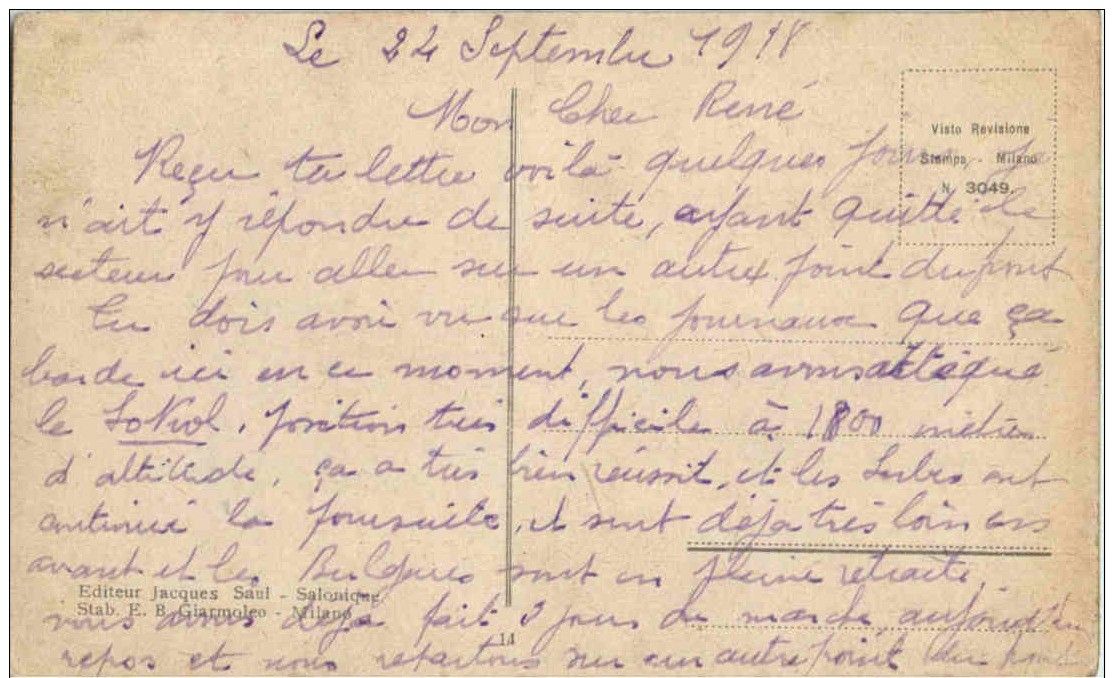 Le 24 Septembre 1918
Mon Cher René
Visto Revisione
Stampa - Milano
N. 3049.
Reçu ta lettre voilà quelques jours, je
n'ait y répondre de suite, ayant quitté le
secteur pour aller sur un autre point du front
Tu dois avoir vu sur les journaux que ça
barde ici en ce moment, nous avons attéqué
le Sokol, position très difficile à 1800 mètres
d'altitude, ça a très bien réussit, et les Serbes ont
continué la poursuite, et sont déjà très loin en
avant et les Bulgares sont en pleine retraite,
Editeur Jacques Saul - Salonique
Stab. E. B. Giarmoleo - Milano
nous avons déjà fait 3 jours de marche, aujourd'hui
14
repos et nous repartons sur un autre point du front